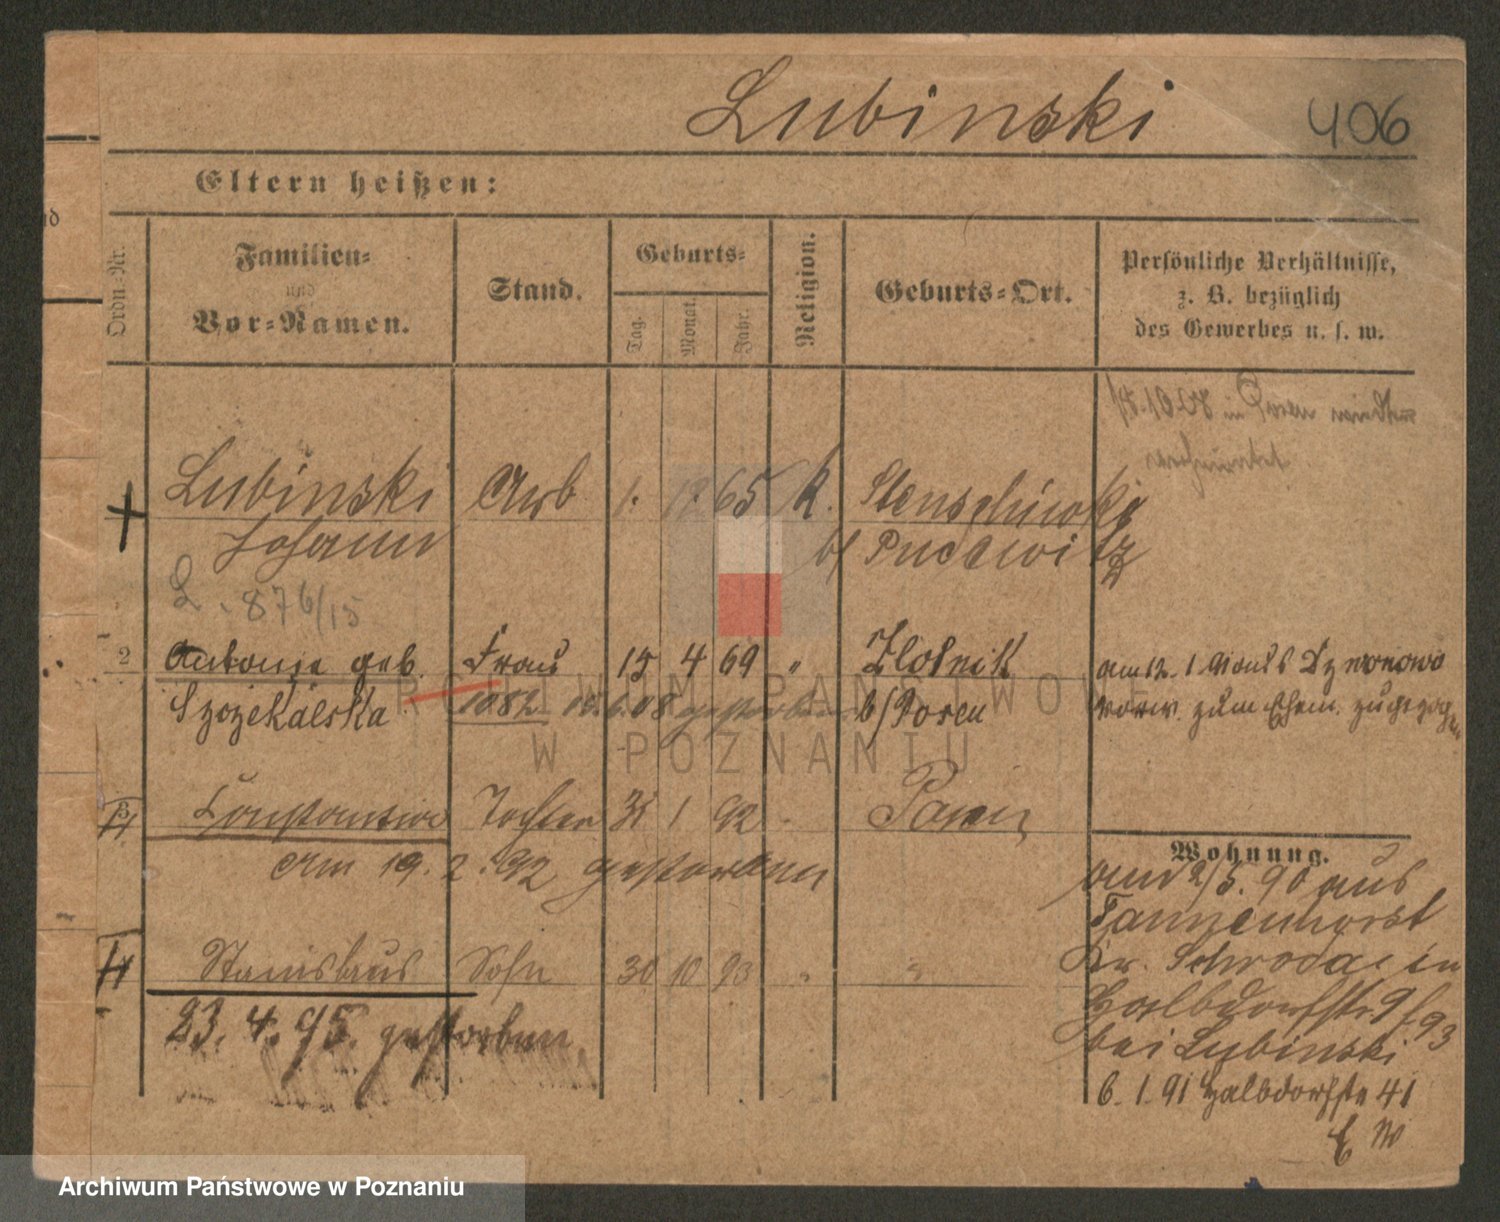 Lubinski
406
Eltern heißen:
Ordn.-Nr.
Familien-
und
Vor-Namen.
Stand.
Geburts-
Tag.
Monat.
Jahr.
Religion.
Geburts-Ort.
Persönliche Verhältnisse,
z. B. bezüglich
des Gewerbes u. s. w.
in Posen
Lubinski Arb 1. 12 65 k.
Johann b/ Pudewitz
L. 876/15
2 Antonie geb. Frau 15 4 69 " Zlotnik am 12. 1.
1082 10.6.08 gestorben b/Posen vorw. zum Ehem. zugezogen
ARCHIWUM PAŃSTWOWE
W POZNANIU
3 Constantia Tochter 31 1 92 Posen
Am 19. 2. 92 gestorben
Wohnung.
2/5. 90 aus
Tannenhorst
Kr. Schroda in
Halbdorfstr.
bei Lubinski
6. 1. 91 Halbdorfstr 41
4 Stanislaus Sohn 30 10 93 " "
23. 4. 95. gestorben
Archiwum Państwowe w Poznaniu